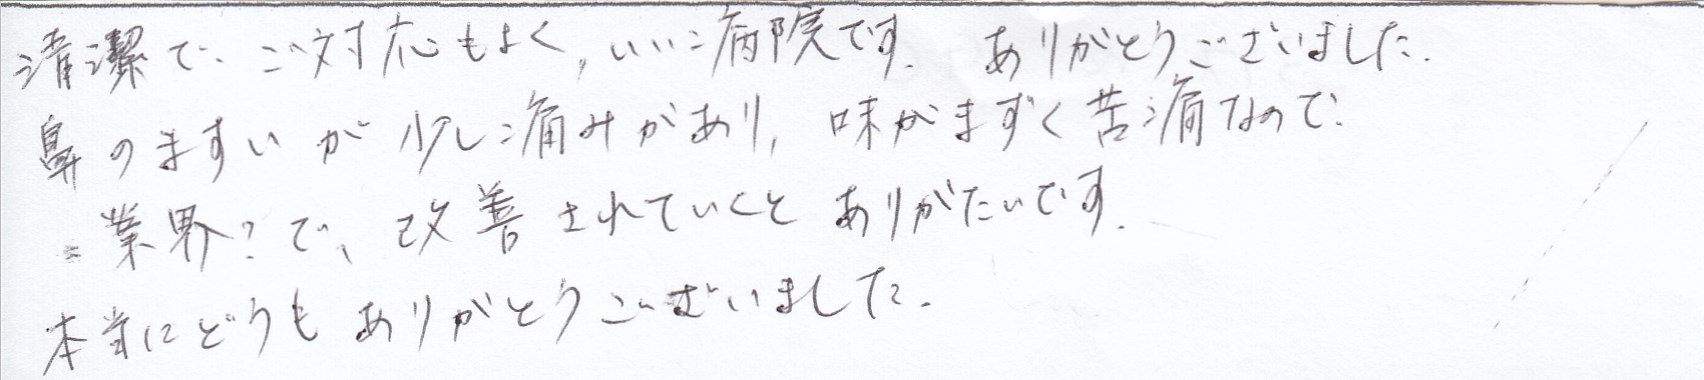 清潔で、ご対応もよく,いい病院です。ありがとうございました.
鼻のますいが少し痛みがあり,味がまずく苦痛なので、
業界?で、改善されていくとありがたいです.
本当にどうもありがとうございました.